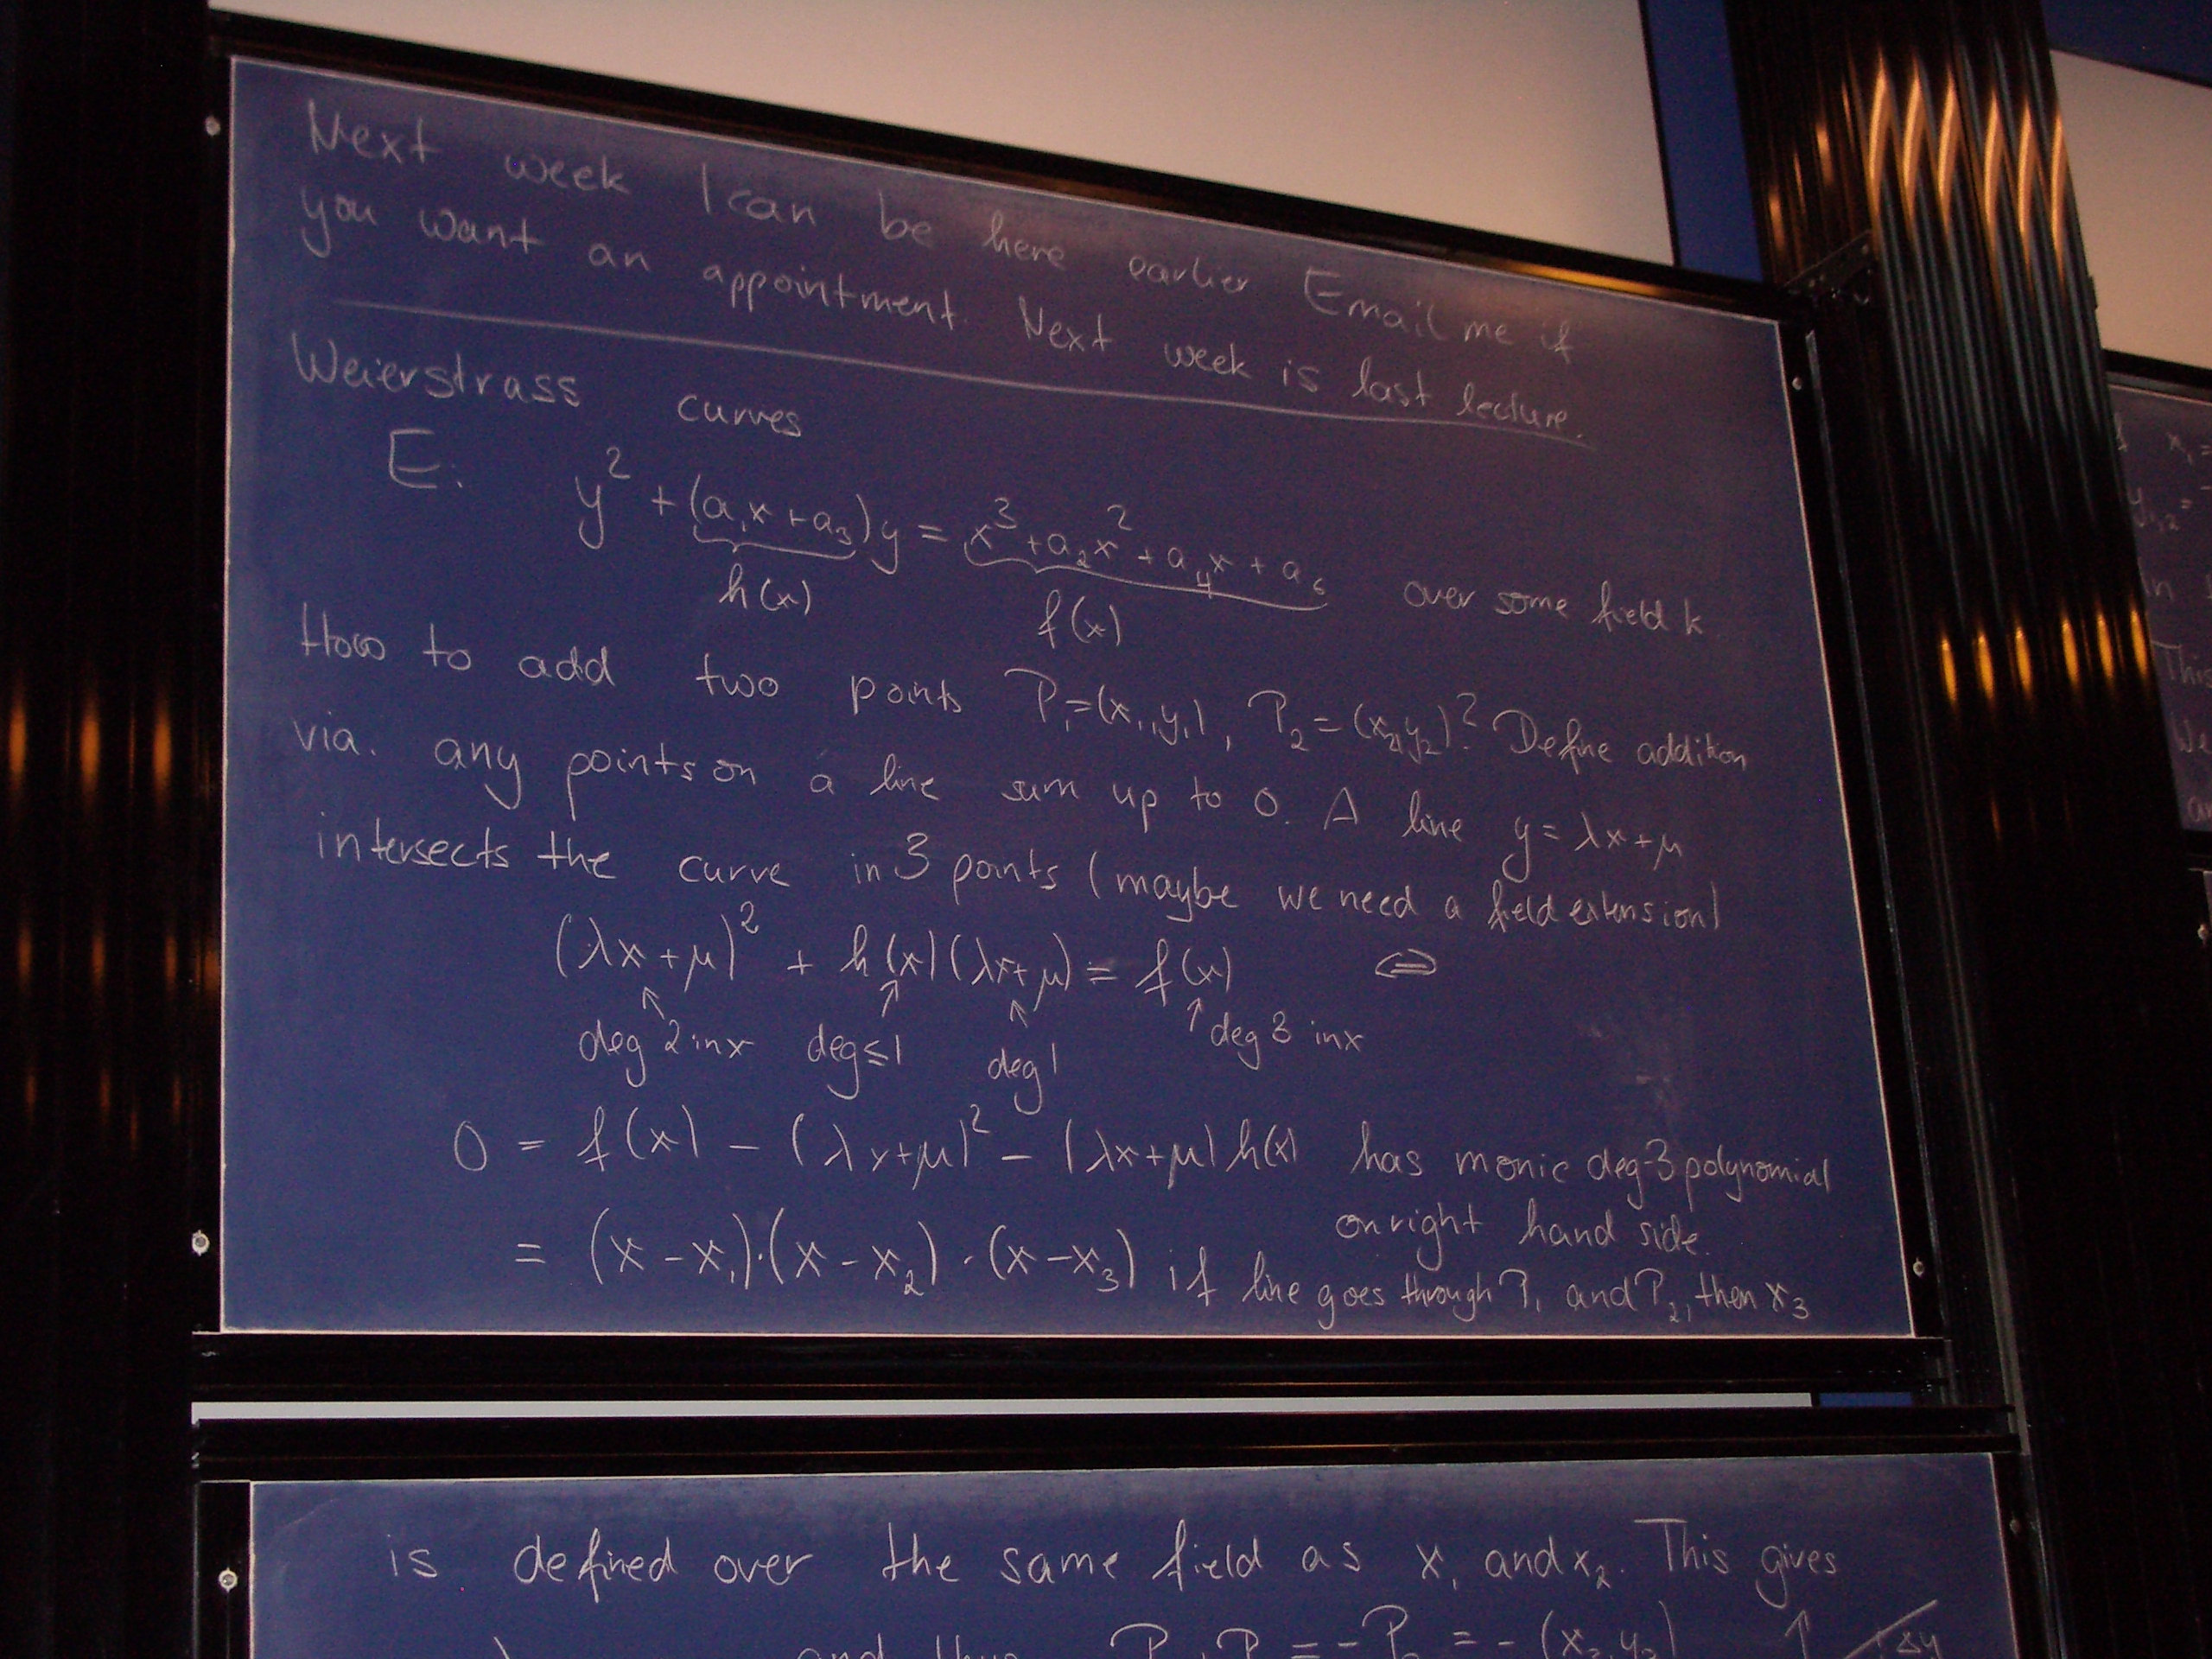 Next week I can be here earlier Email me if
you want an appointment. Next week is last lecture.
Weierstrass curves
E: y² + (a₁x + a₃)y = x³ + a₂x² + a₄x + a₆ over some field k
h(x) f(x)
How to add two points P₁=(x₁,y₁), P₂=(x₂,y₂)? Define addition
via. any points on a line sum up to 0. A line y = λx+μ
intersects the curve in 3 points (maybe we need a field extension)
(λx+μ)² + h(x)(λx+μ) = f(x) ⇔
↑ ↑ ↑ ↑
deg 2 in x deg≤1 deg 1 deg 3 in x
0 = f(x) − (λx+μ)² − (λx+μ)h(x) has monic deg-3 polynomial
on right hand side.
= (x−x₁)·(x−x₂)·(x−x₃) if line goes through P₁ and P₂, then x₃
is defined over the same field as x₁ and x₂. This gives
and thus = − = −(x₃,y₃) ↑
This